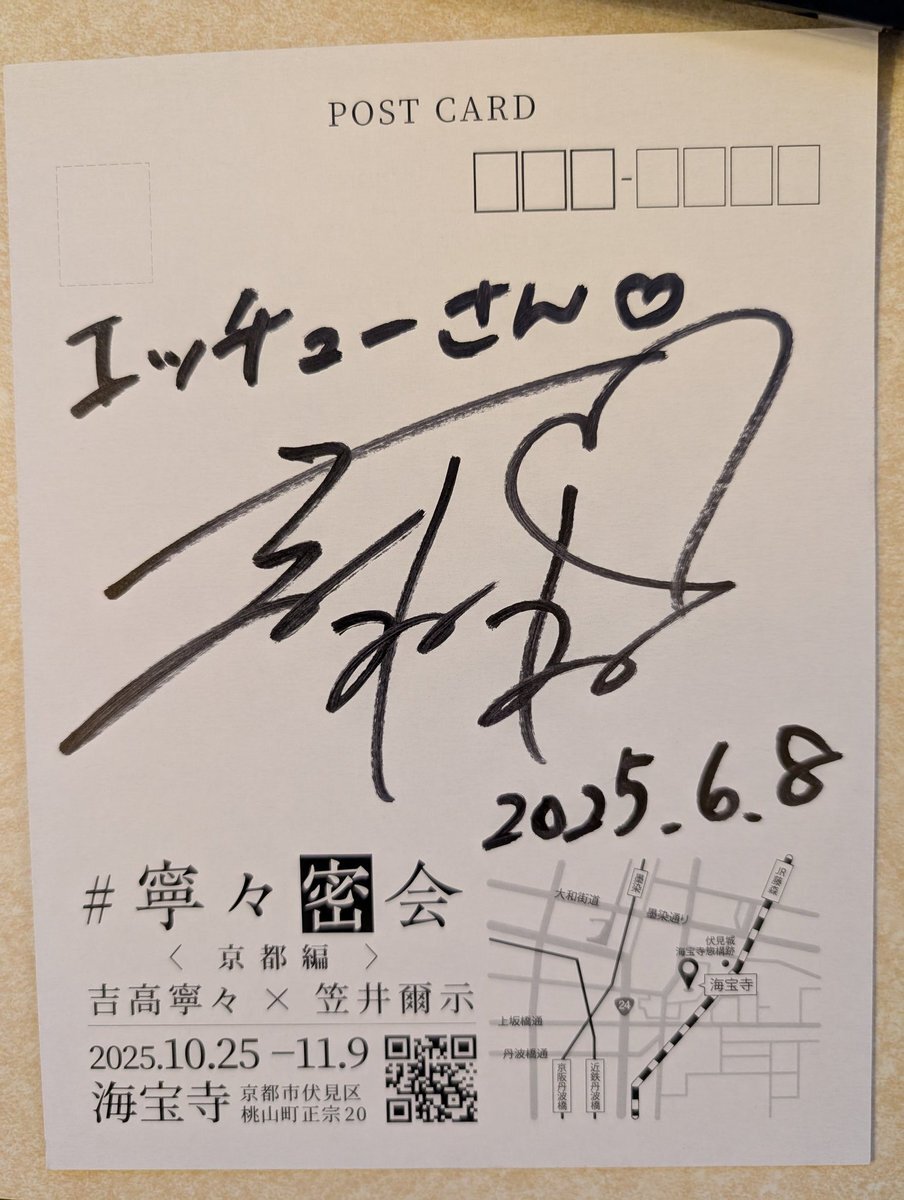 POST CARD
エッチューさん♡
2025.6.8
#寧々密会
〈京都編〉
吉高寧々×笠井爾示
2025.10.25–11.9
海宝寺
京都市伏見区
桃山町正宗20
大和街道
墨染
墨染通り
JR藤森
伏見城
海宝寺旅構跡
海宝寺
24
上坂橋通
丹波橋通
京阪丹波橋
近鉄丹波橋